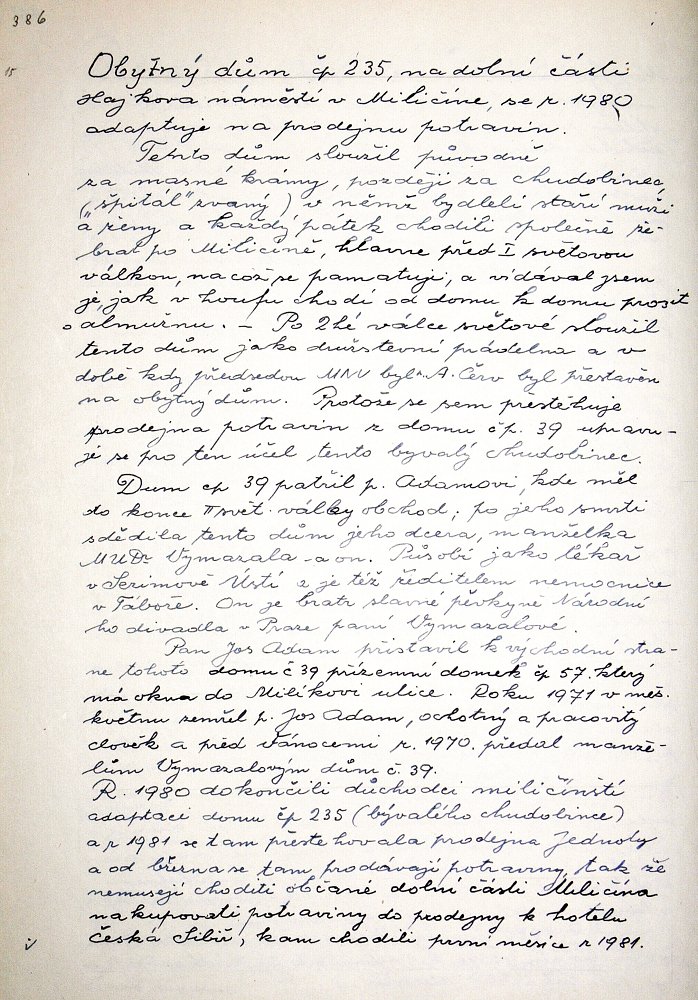 386
15
Obytný dům čp 235, na dolní části
Hajkova náměstí v Miličíně, se r. 1980
adaptuje na prodejnu potravin.
Tento dům sloužil původně
za masné krámy, později za chudobinec
("špitál" zvaný) v němž bydleli staří muži
a ženy a každý pátek chodili společně že-
brat po Miličíně, hlavne před I světovou
válkou, na což se pamatuji, a vídával jsem
je, jak v houfu chodí od domu k domu prosit
o almužnu. – Po 2hé válce světové sloužil
tento dům jako družstevní prádelna a v
době kdy předsedou MNV byl A. Červ byl přestavěn
na obytný dům. Protože se sem přestěhuje
prodejna potravin z domu čp. 39 upravu-
je se pro ten účel tento bývalý chudobinec.
Dum cp 39 patřil p. Adamovi, kde měl
do konce II svět. války obchod; po jeho smrti
sdědila tento dům jeho dcera, manželka
MUDr Vymazala a on. Působí jako lékař
v Sezimově Ústí a je též ředitelem nemocnice
v Táboře. On je bratr slavné pěvkyně Národní
ho divadla v Praze paní Vymazalové.
Pan Jos Adam přistavil k východní stra-
ne tohoto domu č 39 přízemní domek čp 57. který
má okna do Milíkovi ulice. Roku 1971 v měs.
květnu zemřel p. Jos Adam, ochotný a pracovitý
člověk a před Vánocemi r. 1970. předal manže-
lům Vymazalovým dům č. 39.
R. 1980 dokončili důchodci miličínští
adaptaci domu čp 235 (bývalého chudobince)
a r 1981 se tam přestehovala prodejna Jednoty
a od března se tam prodávají potraviny, tak že
nemusejí choditi občané dolní části Miličína
nakupovati potraviny do prodejny k hotelu
Česká Sibiř, kam chodili první měsíce r 1981.